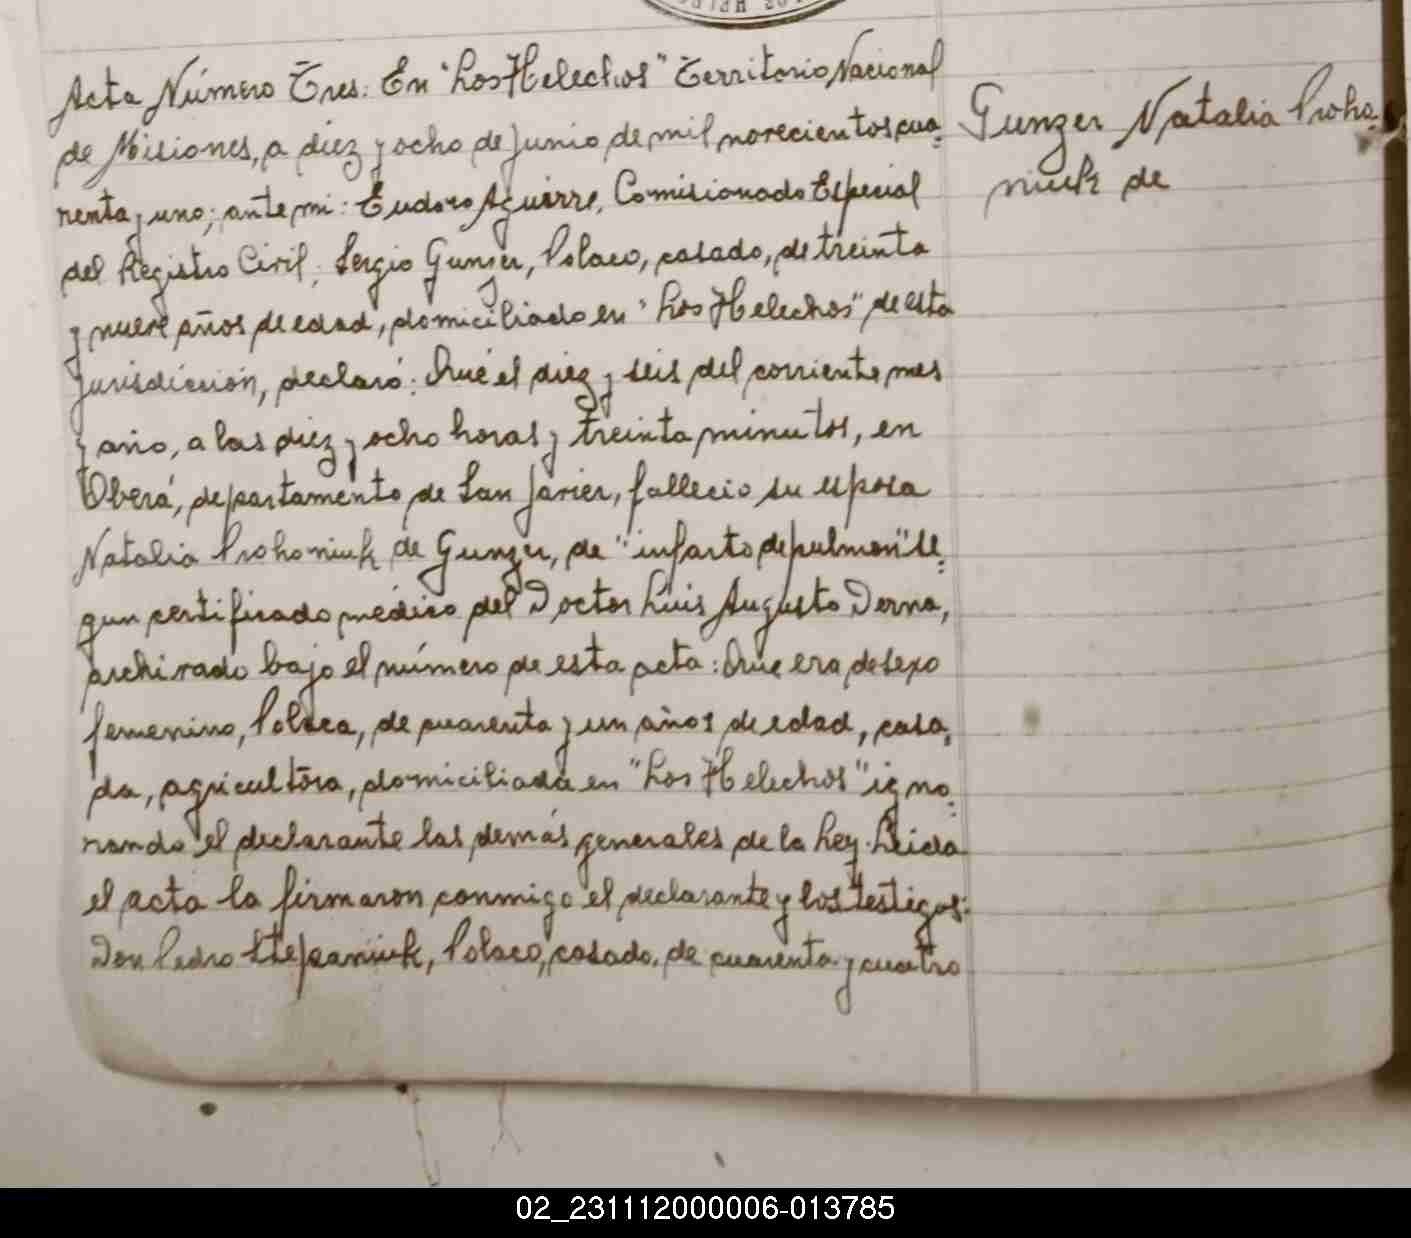 Acta Número Tres: En "Los Helechos" Territorio Nacional
de Misiones, a diez y ocho de Junio de mil novecientos cua=
renta y uno; ante mi: Eudoro Aguirre, Comisionado Especial
del Registro Civil; Sergio Gunzer, Polaco, casado, de treinta
y nueve años de edad, domiciliado en "Los Helechos" de esta
jurisdicción, declaró: Qué el diez y seis del corriente mes
y año, a las diez y ocho horas y treinta minutos, en
Oberá, departamento de San Javier, fallecio su esposa
Natalia Prohoniuk de Gunzer, de "infarto de pulmon" se=
gun certificado médico del Doctor Luis Augusto Derna,
archivado bajo el número de esta acta: Que era de sexo
femenino, Polaca, de cuarenta y un años de edad, casa=
da, agricultora, domiciliada en "Los Helechos" igno=
rando el declarante las demás generales de la Ley. Leida
el acta la firmaron conmigo el declarante y los testigos:
Don Pedro Stepaniuk, Polaco, casado, de cuarenta y cuatro
Gunzer Natalia Proho=
niuk de
02_231112000006-013785